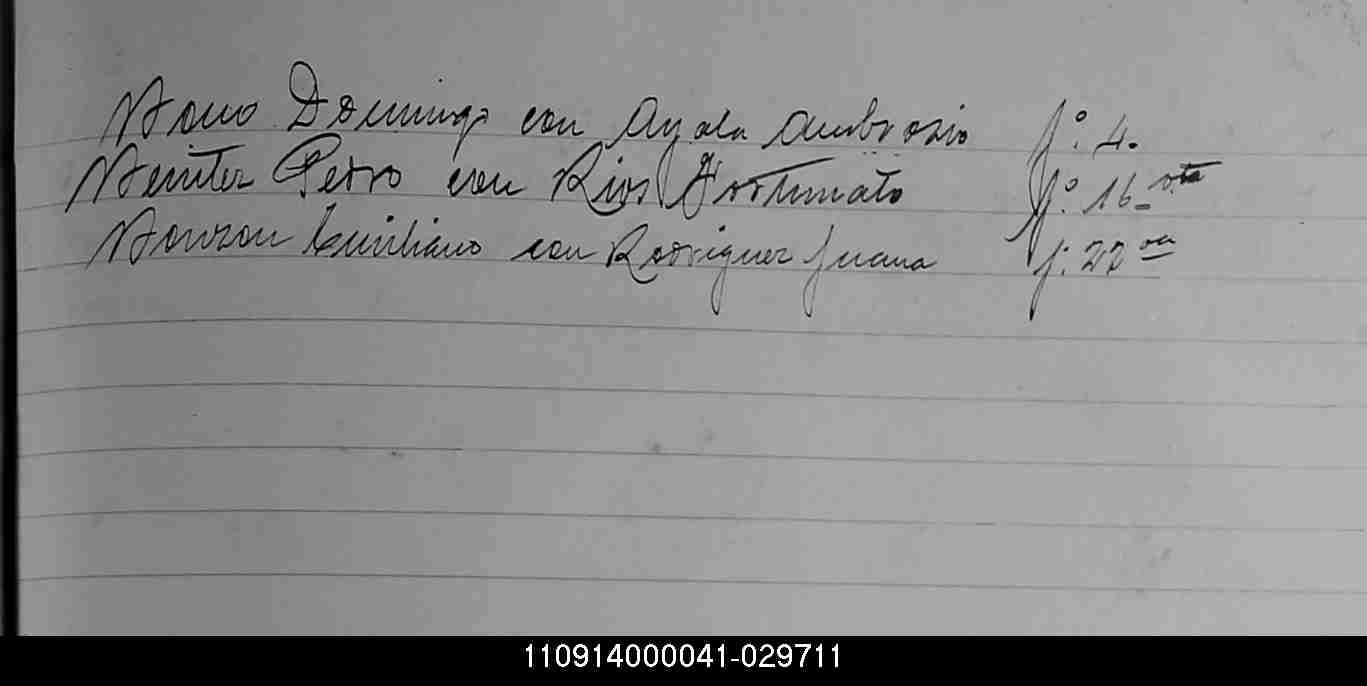 Domingo con Ayala Ambrosio fº. 4.
Pedro con Rios Fortunato fº. 16 vta
Emiliano con Rodriguez Juana f. 22
110914000041-029711